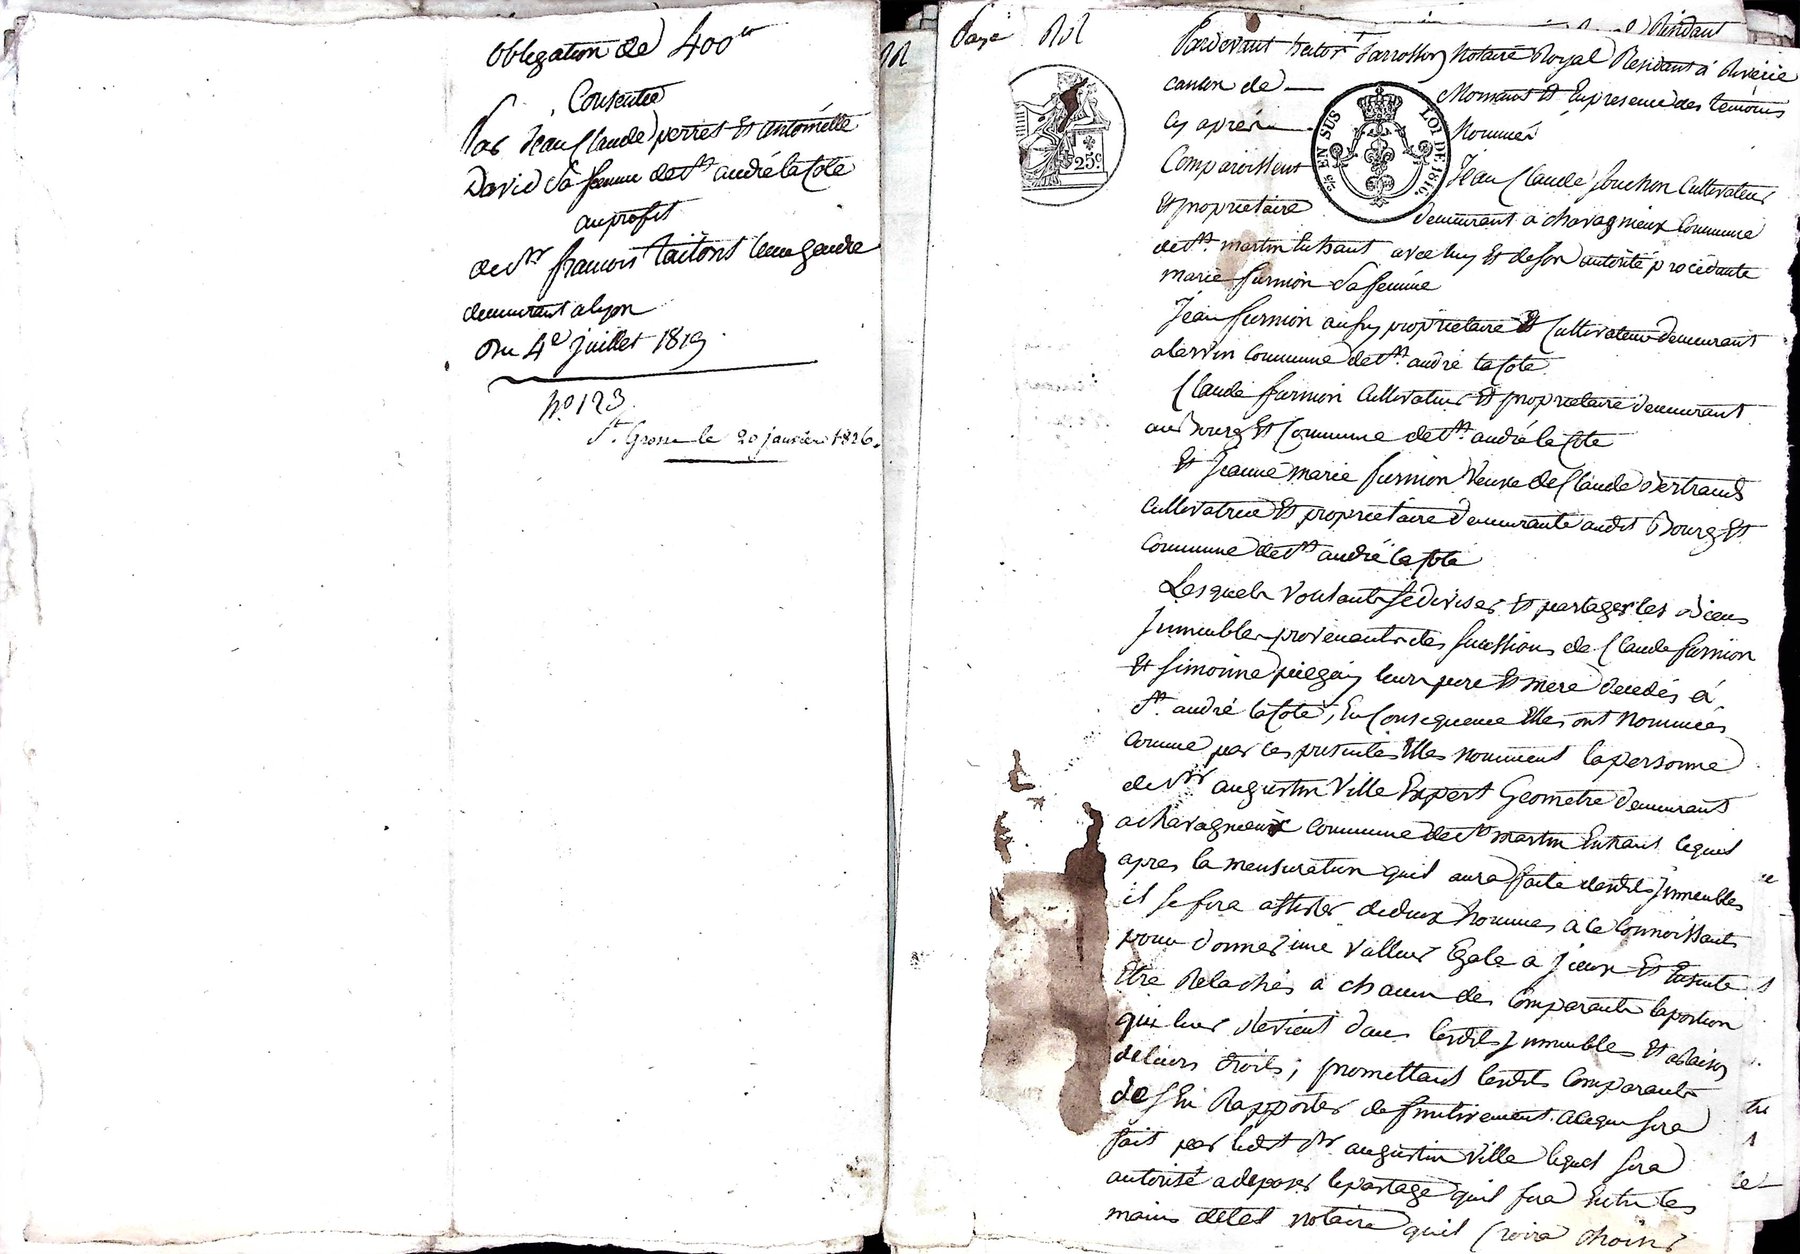 obligation de 400ᶠʳ
Consentie
Par Jean Claude perret Et antoinette
David Sa femme de St andré la Cote
au profit
de Sr francois taitons lenegendre
demeurant a lyon
Du 4e juillet 1819
No 123
St. Grosse le 20 janvier 1826.
Page
Pardevant hator farrosson Notaire Royal Residant à Riverie
canton de Mornant Et En presence des temoins
Cy aprés Nommés
Comparoissent Jean Claude Souchon Cultivateur
Et proprietaire demeurant a chavagnieux Commune
de St martin En haut avec luy Et de Son autorité procédante
marie furnion Sa femme
Jean furnion aussy proprietaire Et Cultivateur demeurant
a lervin Commune de St andré la Cote
Claude furnion Cultivateur Et proprietaire demeurant
au Bourg Et Commune de St andré la Cote
Et Jeanne marie furnion Veuve de Claude Bertrand
Cultivatrice Et proprietaire demeurante audit Bourg Et
Commune de St andré la Cote
Lesquels Voulants Se diviser Et partager les Biens
Jmmeubles provenants des Successions de Claude furnion
Et Simonne piegay leurs pere Et mere decedés á
St. andré la Cote, En Consequence Elles ont Nommées
Comme par ces presentes Elles nomment la personne
de Sr augustin Ville Expert Geometre demeurant
a chavagnieux commune de St martin En haut lequel
apres la mensuration quil aura faite desdits Jmmeubles
il se fera assister de deux hommes à ce Connoissants
pour donner une Valleur Egale a Jceux Et Ensuite
Etre Relachés a chacun des Comparants la portion
qui leur Revient dans lesdits Jmmeubles Et a Raison
de leurs droits; promettant lesdits Comparants
de S'En Rapporter definitivement a ce qui Sera
fait par ledit Sr augustin Ville lequel Sera
autorisé a deposer le partage quil fera Entre les
mains de tel notaire quil Croira choisir
EN SUS
LOI DE 1816.
25c.